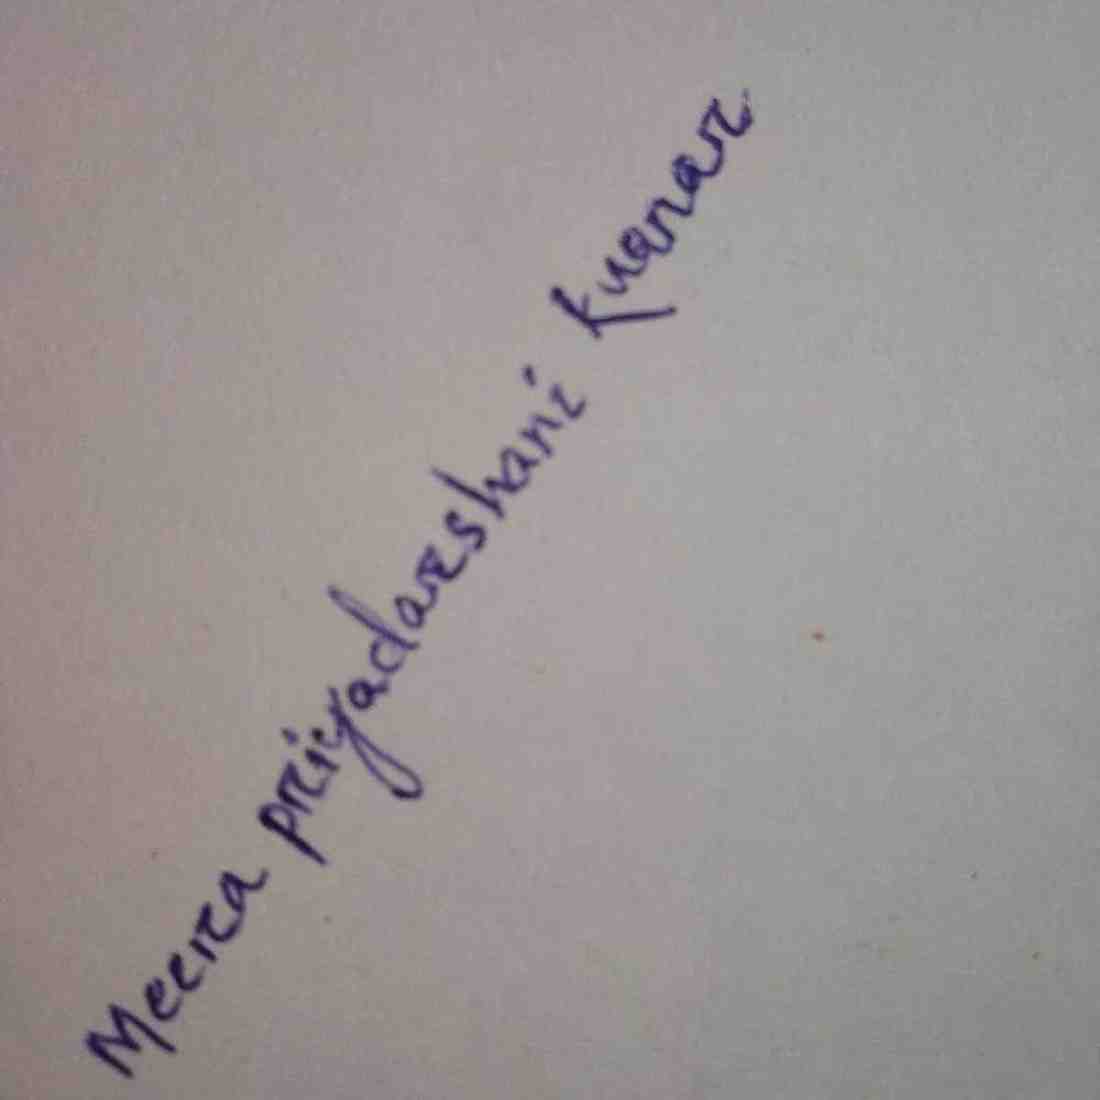 Meera priyadarshani kuanar